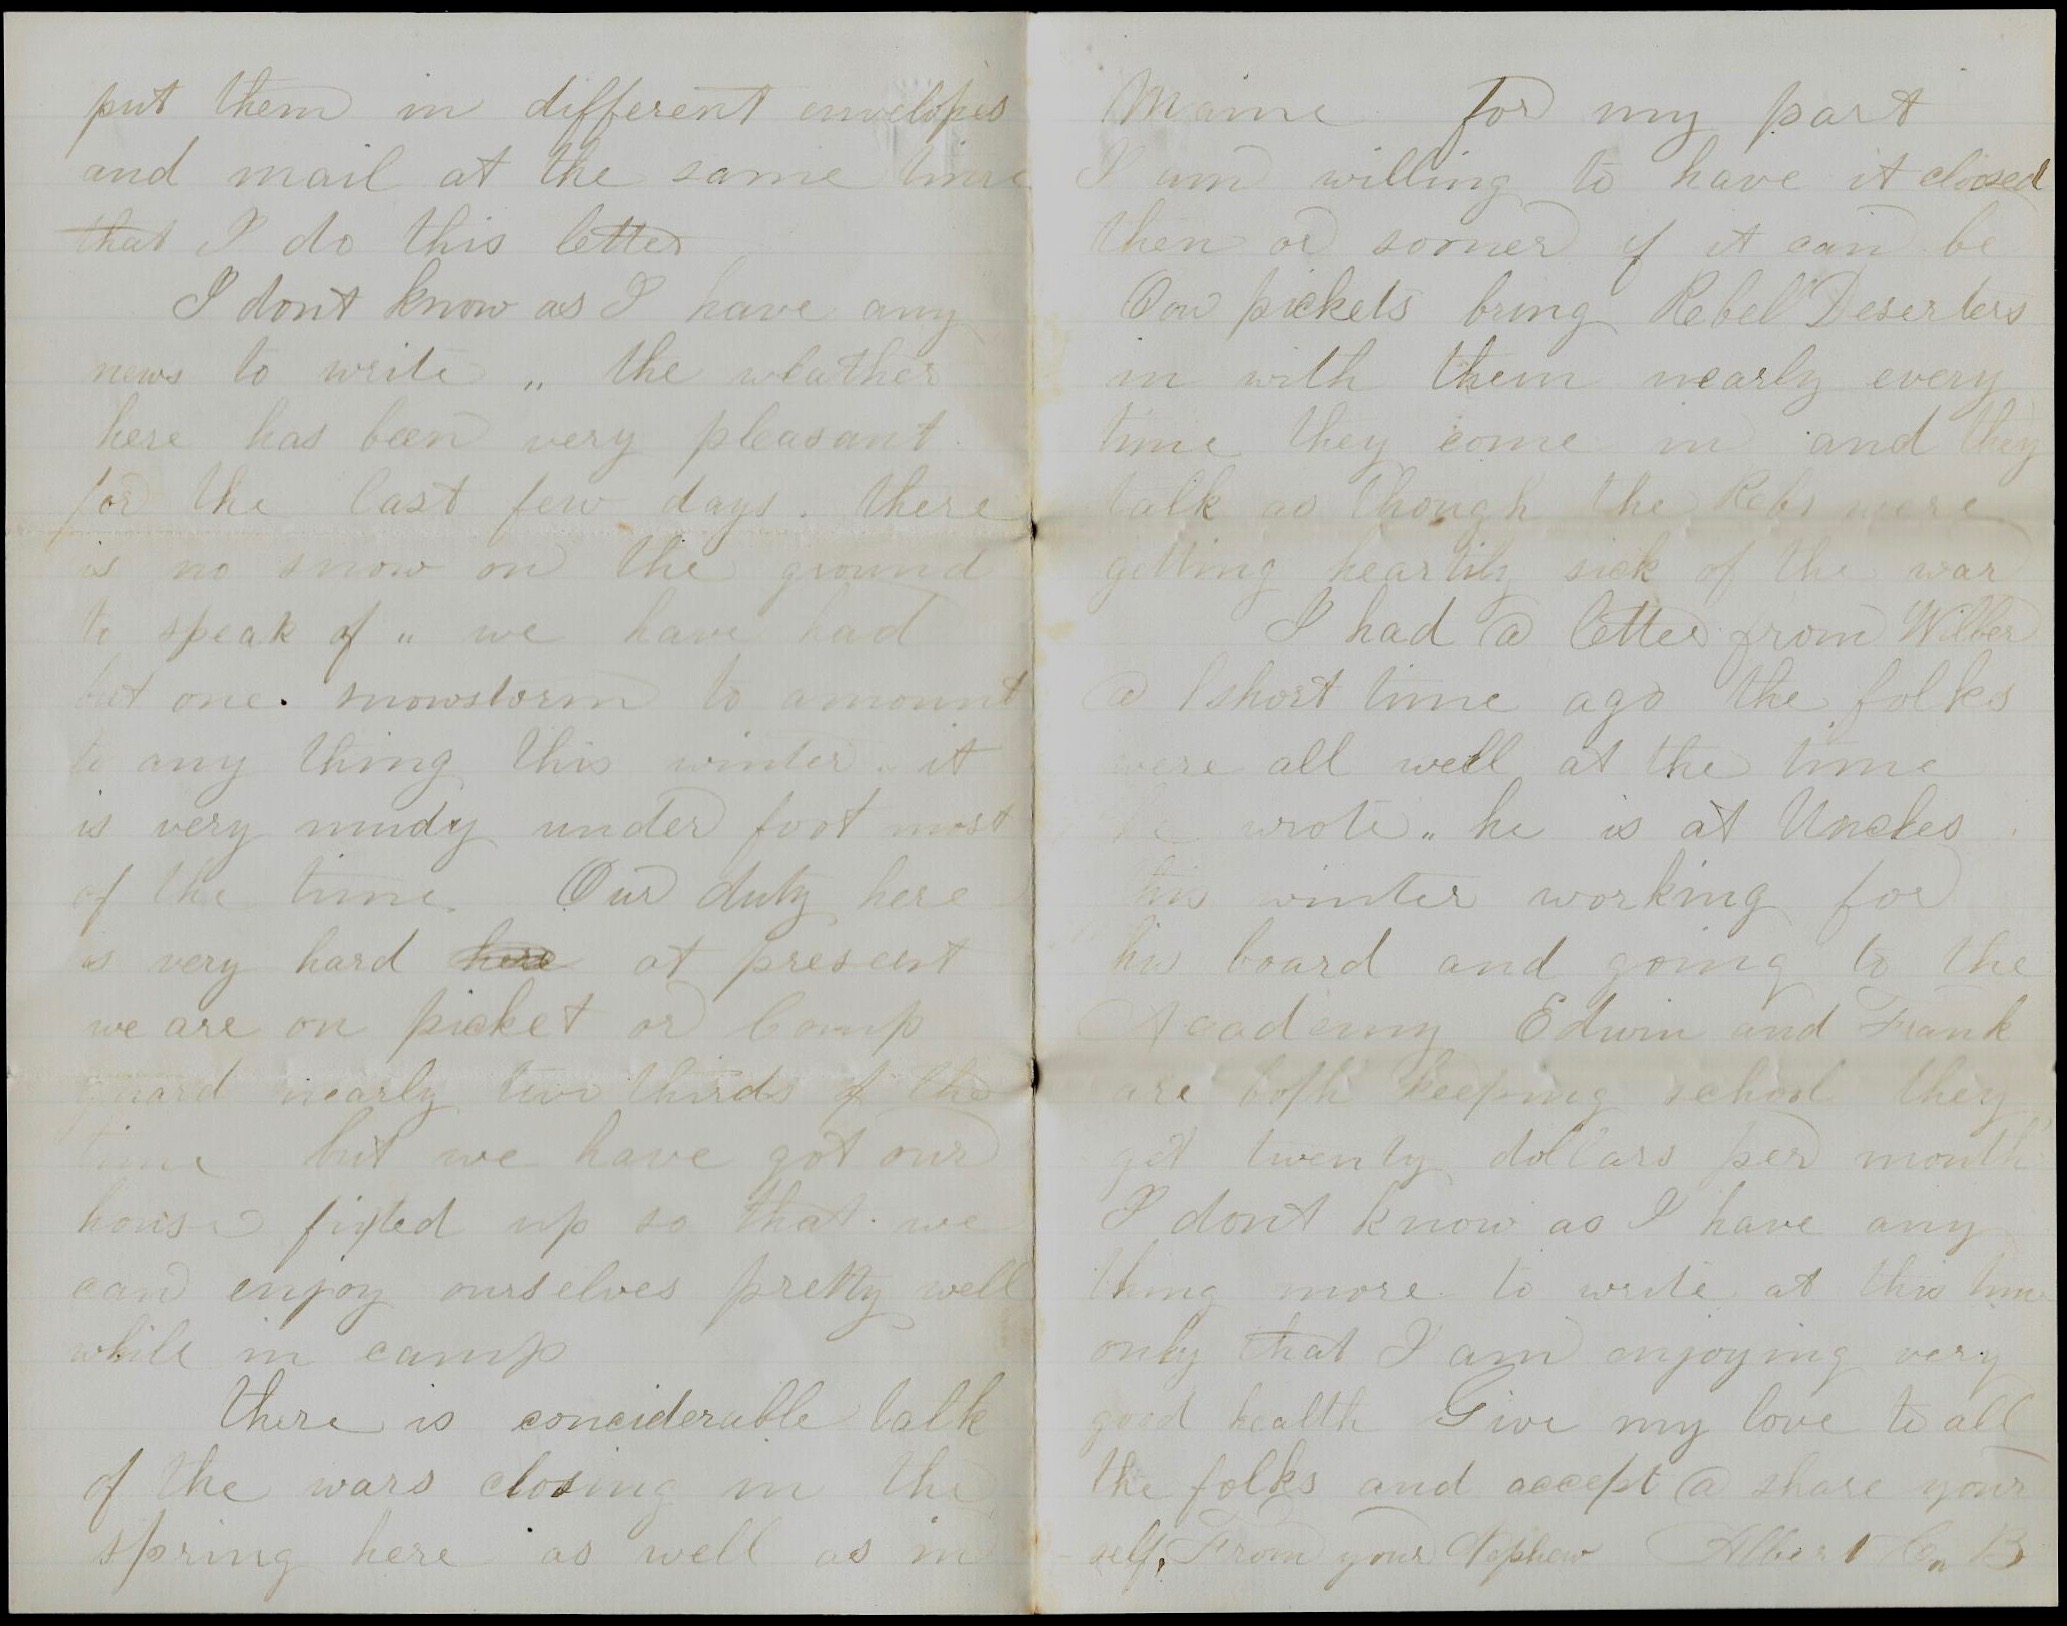 put them in different envelopes
and mail at the same time
that I do this letter
I dont know as I have any
news to write „ the weather
here has been very pleasant
for the last few days. there
is no snow on the ground
to speak of „ we have had
but one. snowstorm to amount
to any thing this winter. it
is very mudy under foot most
of the time Our duty here
is very hard here at present
we are on picket or Camp
guard nearly two thirds of the
time but we have got our
house fixted up so that we
can enjoy ourselves pretty well
while in camp
there is conciderable talk
of the wars closing in the
spring here as well as in
Maine For my part
I am willing to have it closed
then or sooner if it can be
Our pickets bring Rebel Deserters
in with them nearly every
time they come in and they
talk as though the Rebs were
getting heartily sick of the war
I had a letter from Wilber
a short time ago the folks
were all well at the time
he wrote „ he is at Uncles
this winter working for
his board and going to the
Academy Edwin and Frank
are both keeping school they
get twenty dollars per month
I dont know as I have any
thing more to write at this time
only that I am enjoying very
good health Give my love to all
the folks and accept a share your
self. From your Nephew Albert Co B